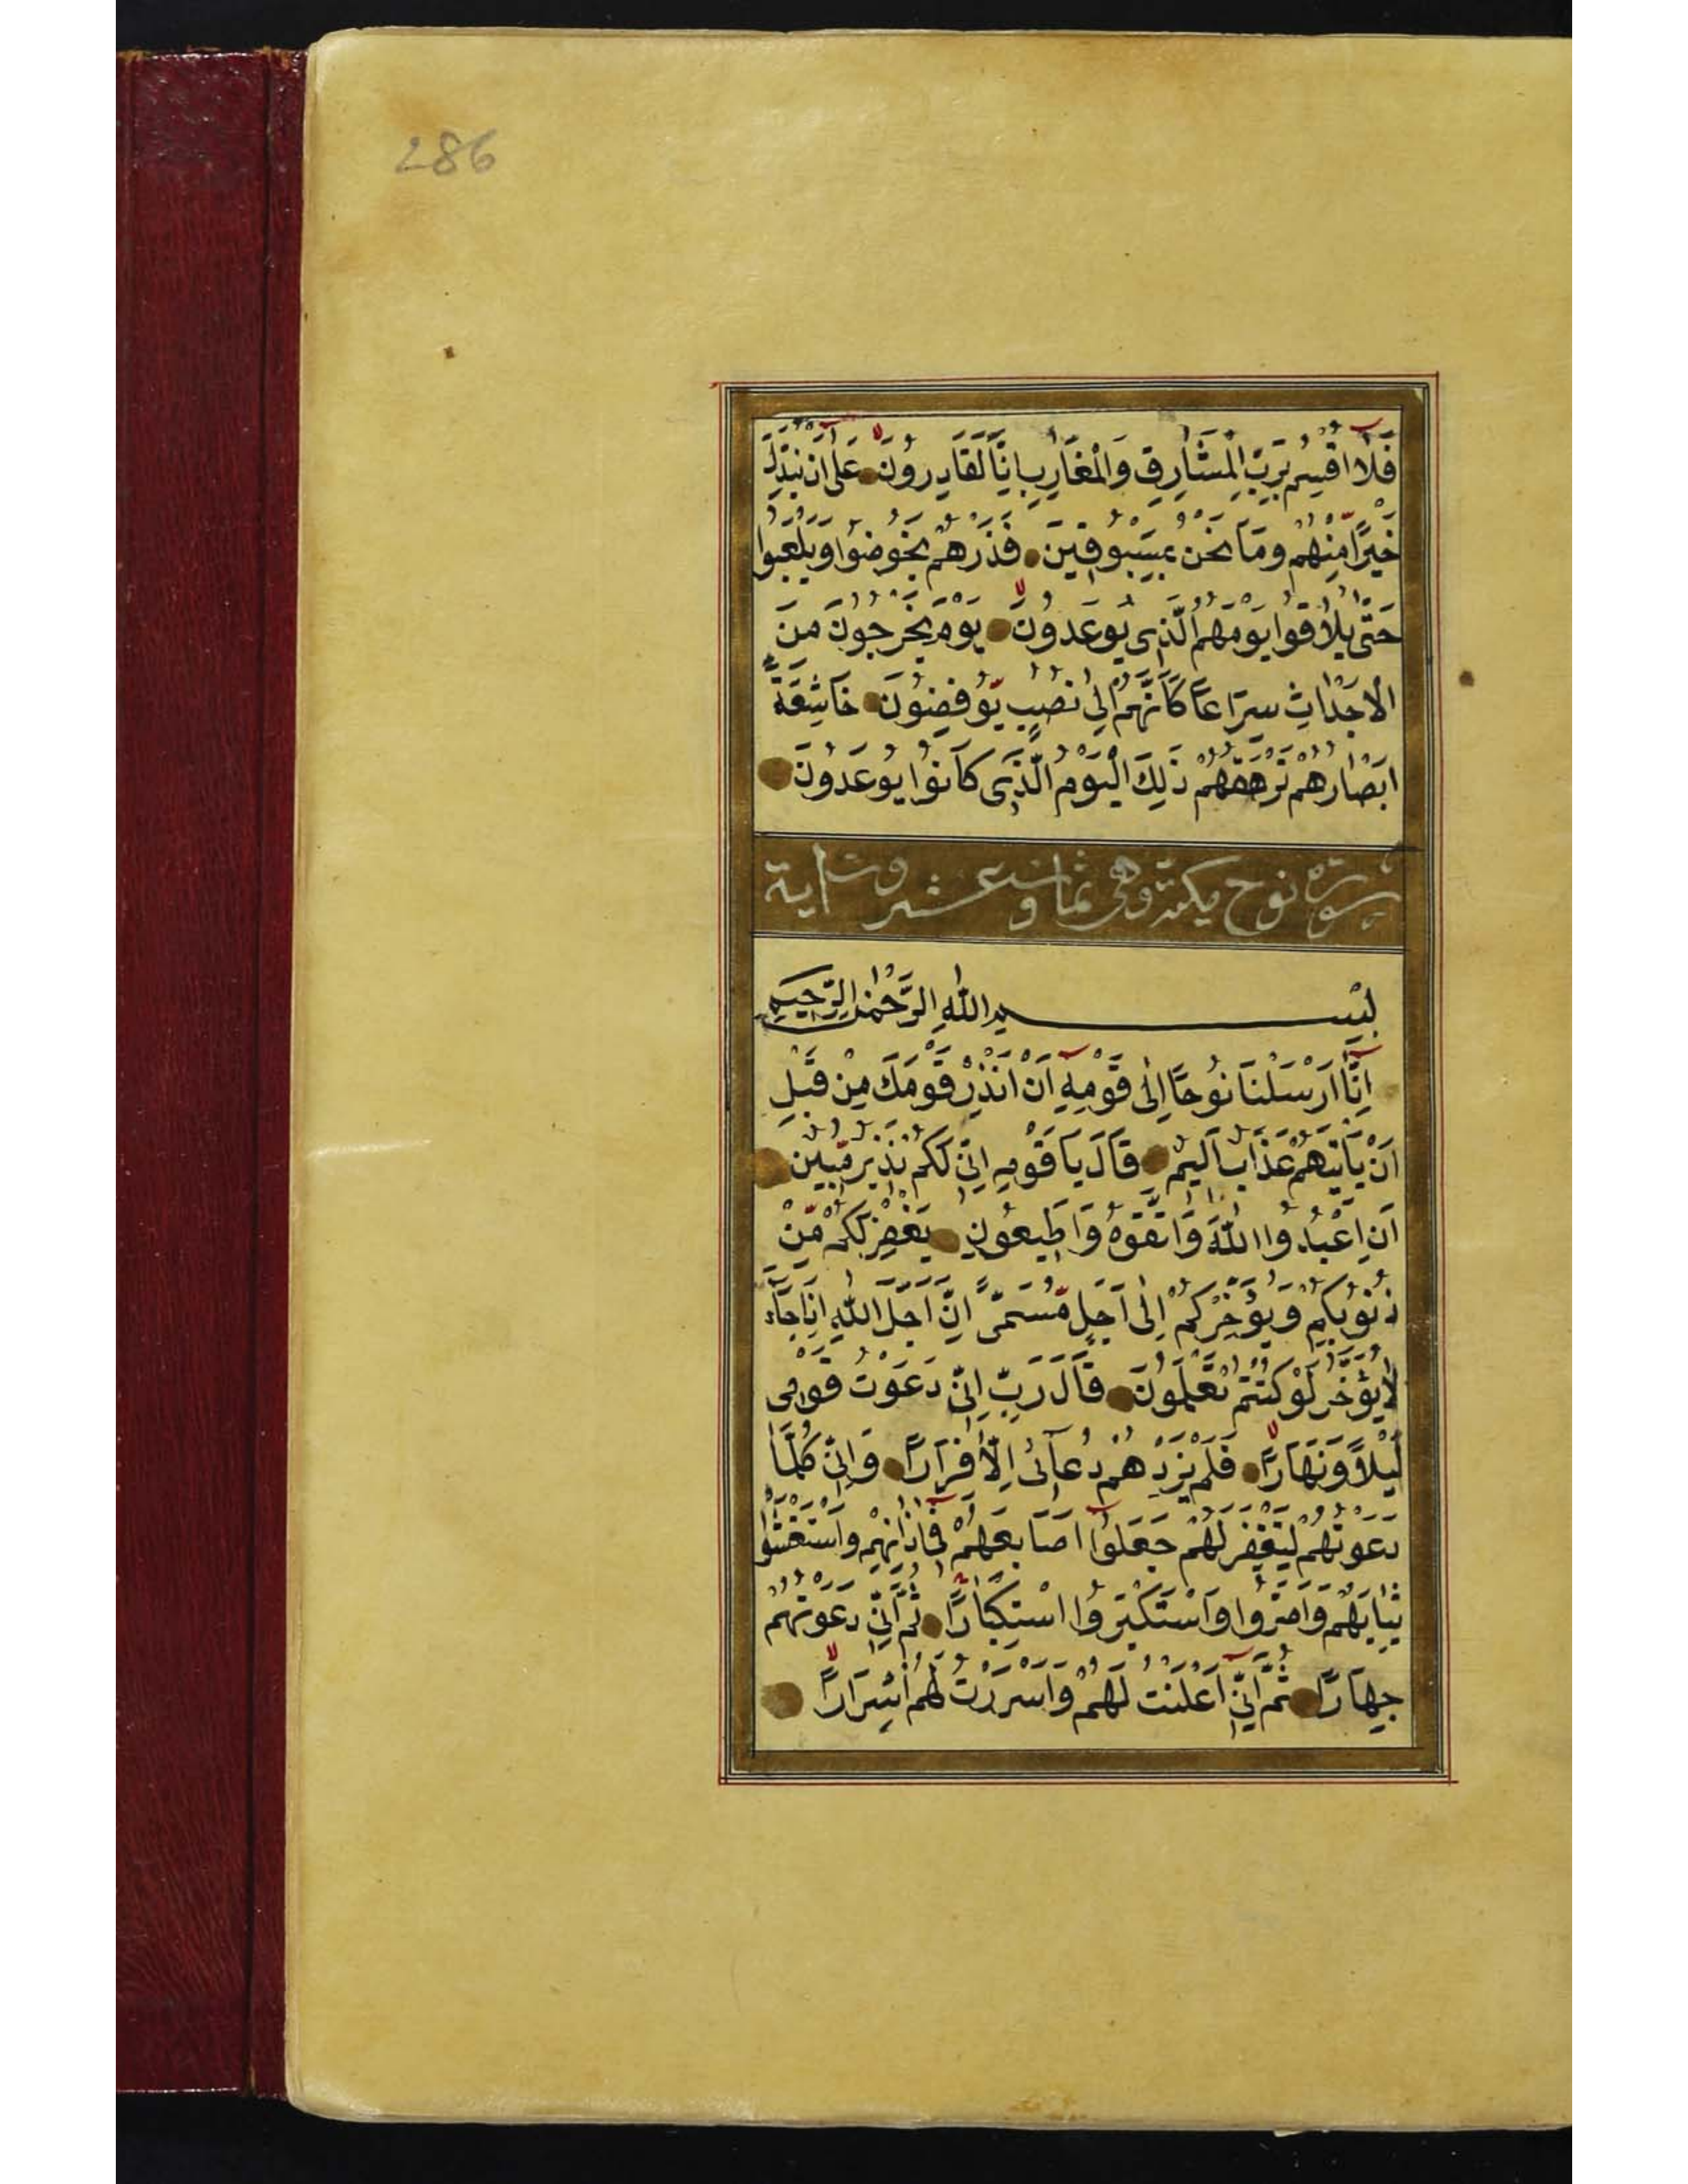 286
فَلَا اُقْسِمُ بِرَبِّ الْمَشَارِقِ وَالْمَغَارِبِ اِنَّا لَقَادِرُونَ عَلٰى اَنْ نُبَدِّلَ
خَيْرًا مِنْهُمْ وَمَا نَحْنُ بِمَسْبُوقِينَ فَذَرْهُمْ يَخُوضُوا وَيَلْعَبُوا
حَتّٰى يُلَاقُوا يَوْمَهُمُ الَّذِى يُوعَدُونَ يَوْمَ يَخْرُجُونَ مِنَ
الْاَجْدَاثِ سِرَاعًا كَاَنَّهُمْ اِلٰى نُصُبٍ يُوفِضُونَ خَاشِعَةً
اَبْصَارُهُمْ تَرْهَقُهُمْ ذٰلِكَ الْيَوْمُ الَّذِى كَانُوا يُوعَدُونَ
سورة نوح مكية وهى ثمان وعشرون اية
بِسْمِ اللّٰهِ الرَّحْمٰنِ الرَّحِيمِ
اِنَّا اَرْسَلْنَا نُوحًا اِلٰى قَوْمِهِ اَنْ اَنْذِرْ قَوْمَكَ مِنْ قَبْلِ
اَنْ يَاْتِيَهُمْ عَذَابٌ اَلِيمٌ قَالَ يَا قَوْمِ اِنِّى لَكُمْ نَذِيرٌ مُبِينٌ
اَنِ اعْبُدُوا اللّٰهَ وَاتَّقُوهُ وَاَطِيعُونِ يَغْفِرْ لَكُمْ مِنْ
ذُنُوبِكُمْ وَيُؤَخِّرْكُمْ اِلٰى اَجَلٍ مُسَمًّى اِنَّ اَجَلَ اللّٰهِ اِذَا جَاءَ
لَا يُؤَخَّرُ لَوْ كُنْتُمْ تَعْلَمُونَ قَالَ رَبِّ اِنِّى دَعَوْتُ قَوْمِى
لَيْلًا وَنَهَارًا فَلَمْ يَزِدْهُمْ دُعَائِى اِلَّا فِرَارًا وَاِنِّى كُلَّمَا
دَعَوْتُهُمْ لِتَغْفِرَ لَهُمْ جَعَلُوا اَصَابِعَهُمْ فِى اٰذَانِهِمْ وَاسْتَغْشَوْا
ثِيَابَهُمْ وَاَصَرُّوا وَاسْتَكْبَرُوا اسْتِكْبَارًا ثُمَّ اِنِّى دَعَوْتُهُمْ
جِهَارًا ثُمَّ اِنِّى اَعْلَنْتُ لَهُمْ وَاَسْرَرْتُ لَهُمْ اِسْرَارًا